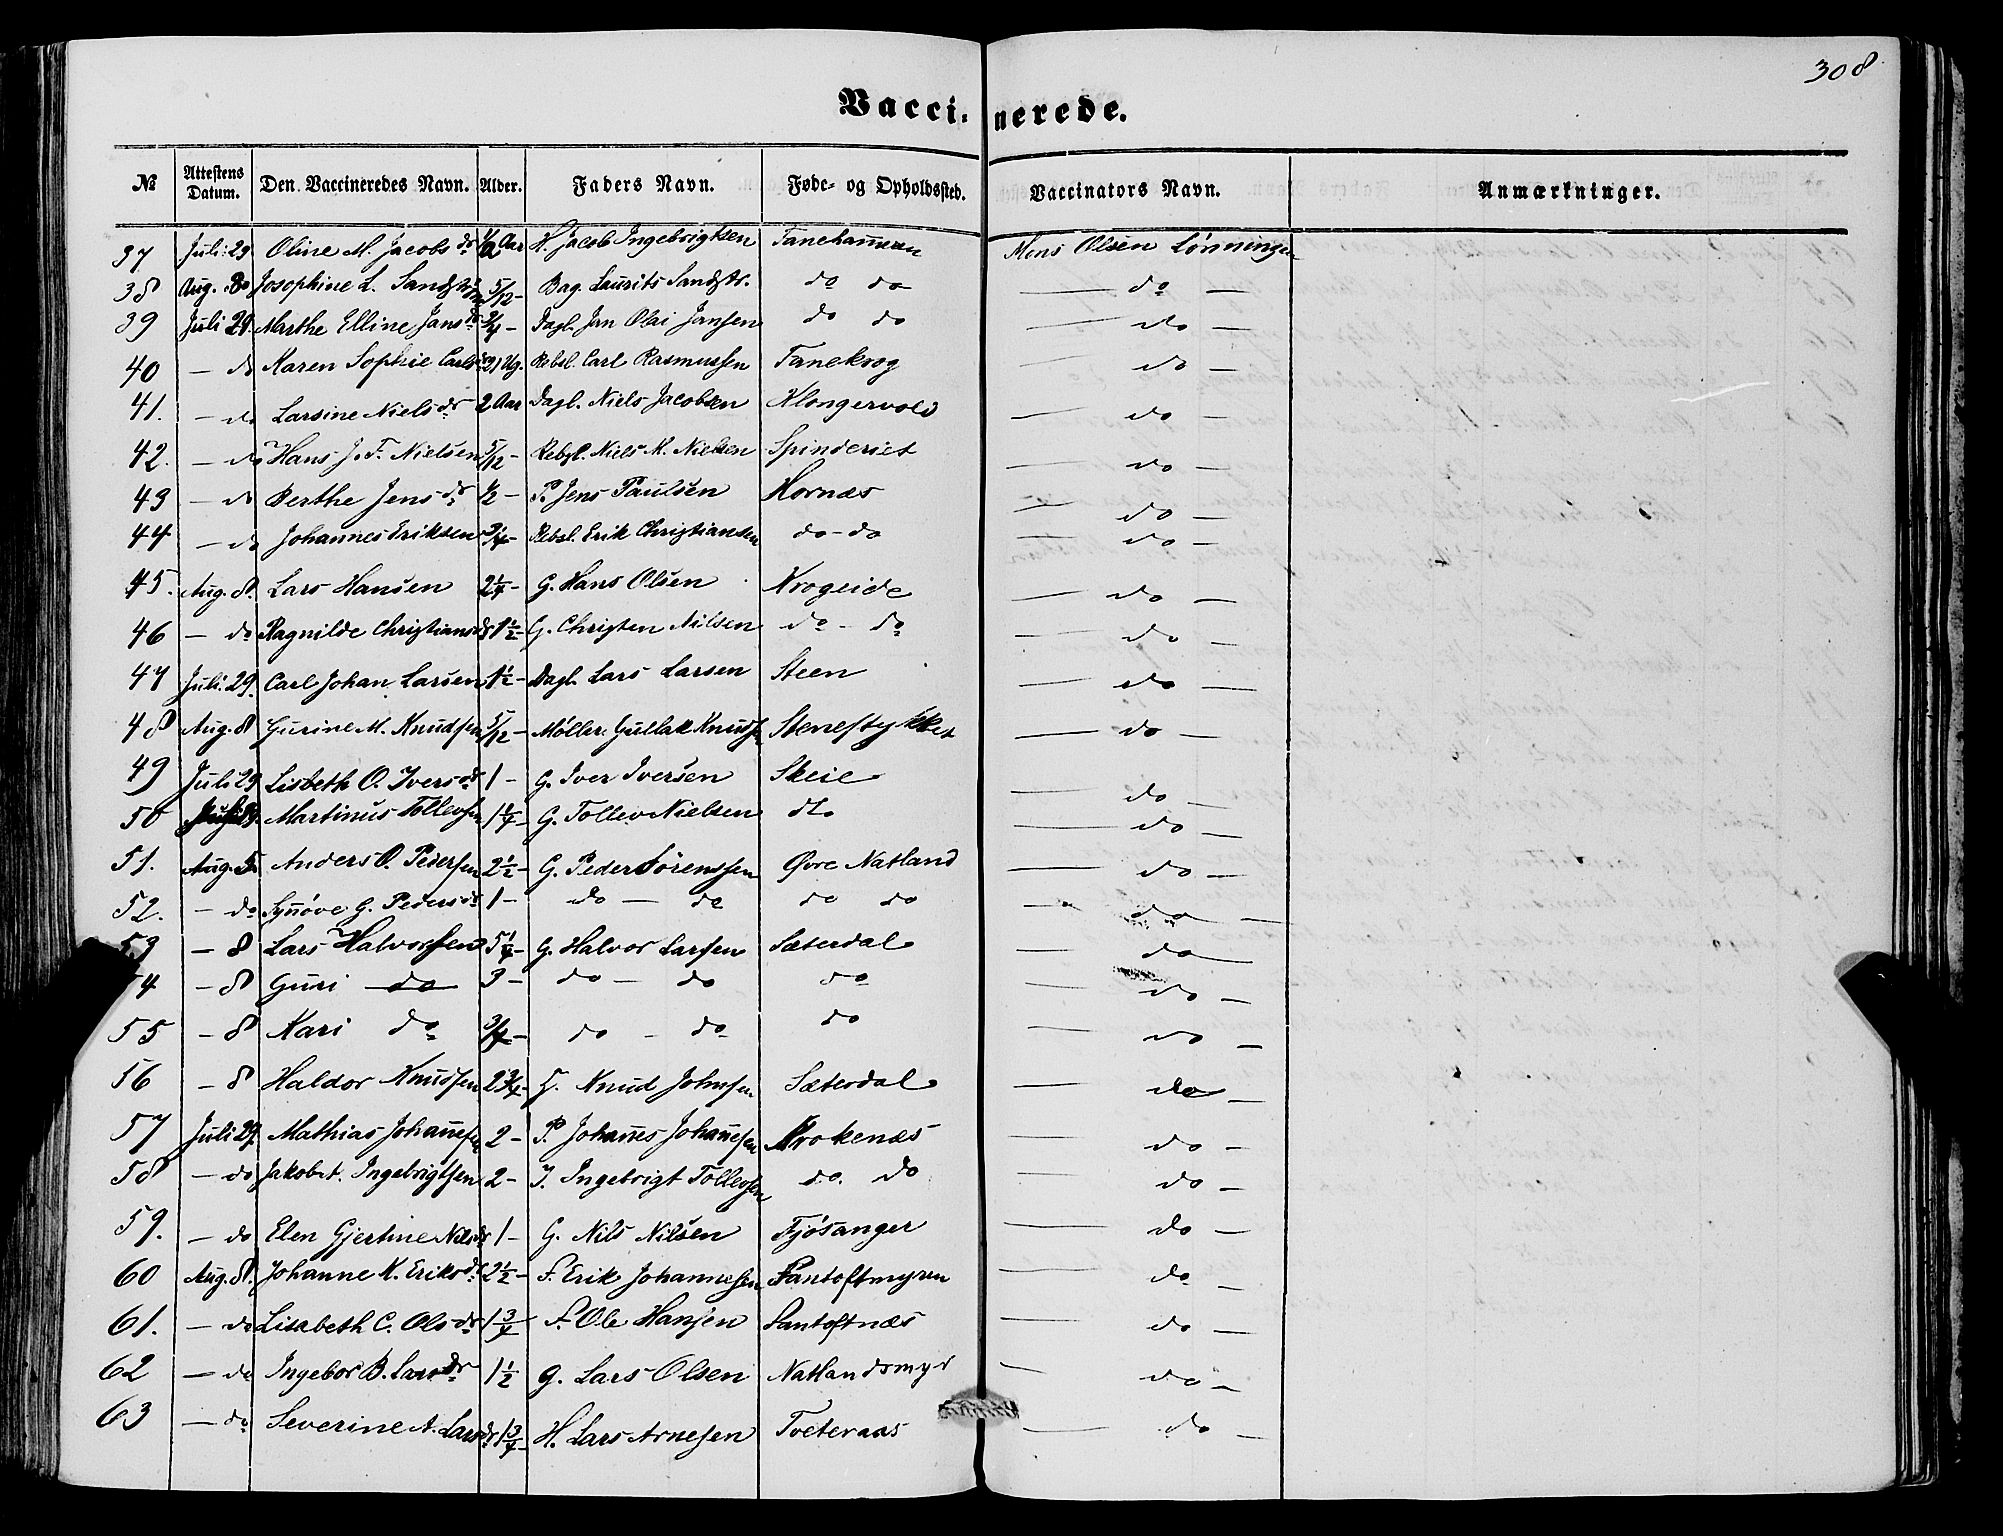 308
Vaccinerede.
№ Attestens Datum. Den Vaccineredes Navn. Alder. Faders Navn. Føde- og Opholdssted. Vaccinators Navn. Anmærkninger.
37 Juli 29 Oline M. Jacobsdr 1/2 Aar H. Jacob Ingebrigtsen Tanehammeren Mons Olsen Lønningen
38 Aug. 8 Josephine L. 5/12 - Bag. Laurits Sandstr. do do — do —
39 Juli 29. Marthe Elline Jansdr 3/4 - Dagl. Jan Olai Jansen do do — do —
40 — do Karen Sophie 21 Ug. Rebsl. Carl Rasmussen Tanekrog — do —
41. — do Larsine Nielsdr 2 Aar Dagl. Niels Jacobsen Klongervold — do —
42. — do Hans J. F. Nielsen 5/12 - Rebsl. Niels M. Nielsen Spinderiet — do —
43 — do Berthe Jensdr 1/2 - P. Jens Paulsen Hornæs — do —
44 — do Johannes Eriksen 3/4 - Rebsl. Erik Christiansen do - do — do —
45. Aug. 8. Lars Hansen 2 1/4 - G. Hans Olsen Krogeide — do —
46 — do Ragnilde Christiansdr 1 1/2 - G. Christen Nilsen do - do — do —
47 Juli 29. Carl Johan Larsen 1 1/2 - Dagl. Lars Larsen Steen — do —
48 Aug. 8 Gurine M. Knudsen 5/12 - Møller Gullak Knudsen Stenestykket — do —
49 Juli 29 Lisbeth O. Iversdr 1 - G. Iver Iversen Skeie — do —
50 Martinus Tollevsen 1 1/4 - G. Tollev Nielsen do — do —
51. Aug. 8 Anders O. Pedersen 2 1/2 - G. Peder Sørenssen Øvre Natland — do —
52. — do Synnøve G. Pedersdr 1 - do — do do do — do —
53 — 8 Lars Halvorsen 5 1/4 - G. Halvor Larsen Sæterdal — do —
54 — 8 Guri do 3 - do — do do — do —
55 — 8 Kari do 3/4 - do - do do — do —
56 — 8 Haldor Knudsen 2 3/4 - Knud Johnsen Sæterdal — do —
57 Juli 29. Mathias Johannesen 2 - P. Johannes Johannesen Krokenæs — do —
58 — do Jakob t. Ingebrigtsen 2 - I. Ingebrigt Tollevsen do. do — do —
59. — do Elen Gjertine Nilsdr 1 - G. Nils Nilsen Fjøsanger — do —
60 Aug. 8. Johanne K. Eriksdr 2 1/2 - F. Erik Johannesen Fantoftmyren — do —
61. — do Lisabeth C. Olsdr 1 3/4 F. Ole Hansen Fantoftnæs — do —
62 — do Ingebor B. Larsdr 1 1/2 G. Lars Olsen Natlandsmyr — do —
63 — do Severine A. Larsdr 1 3/4 - H. Lars Arnesen Tveteraas — do —